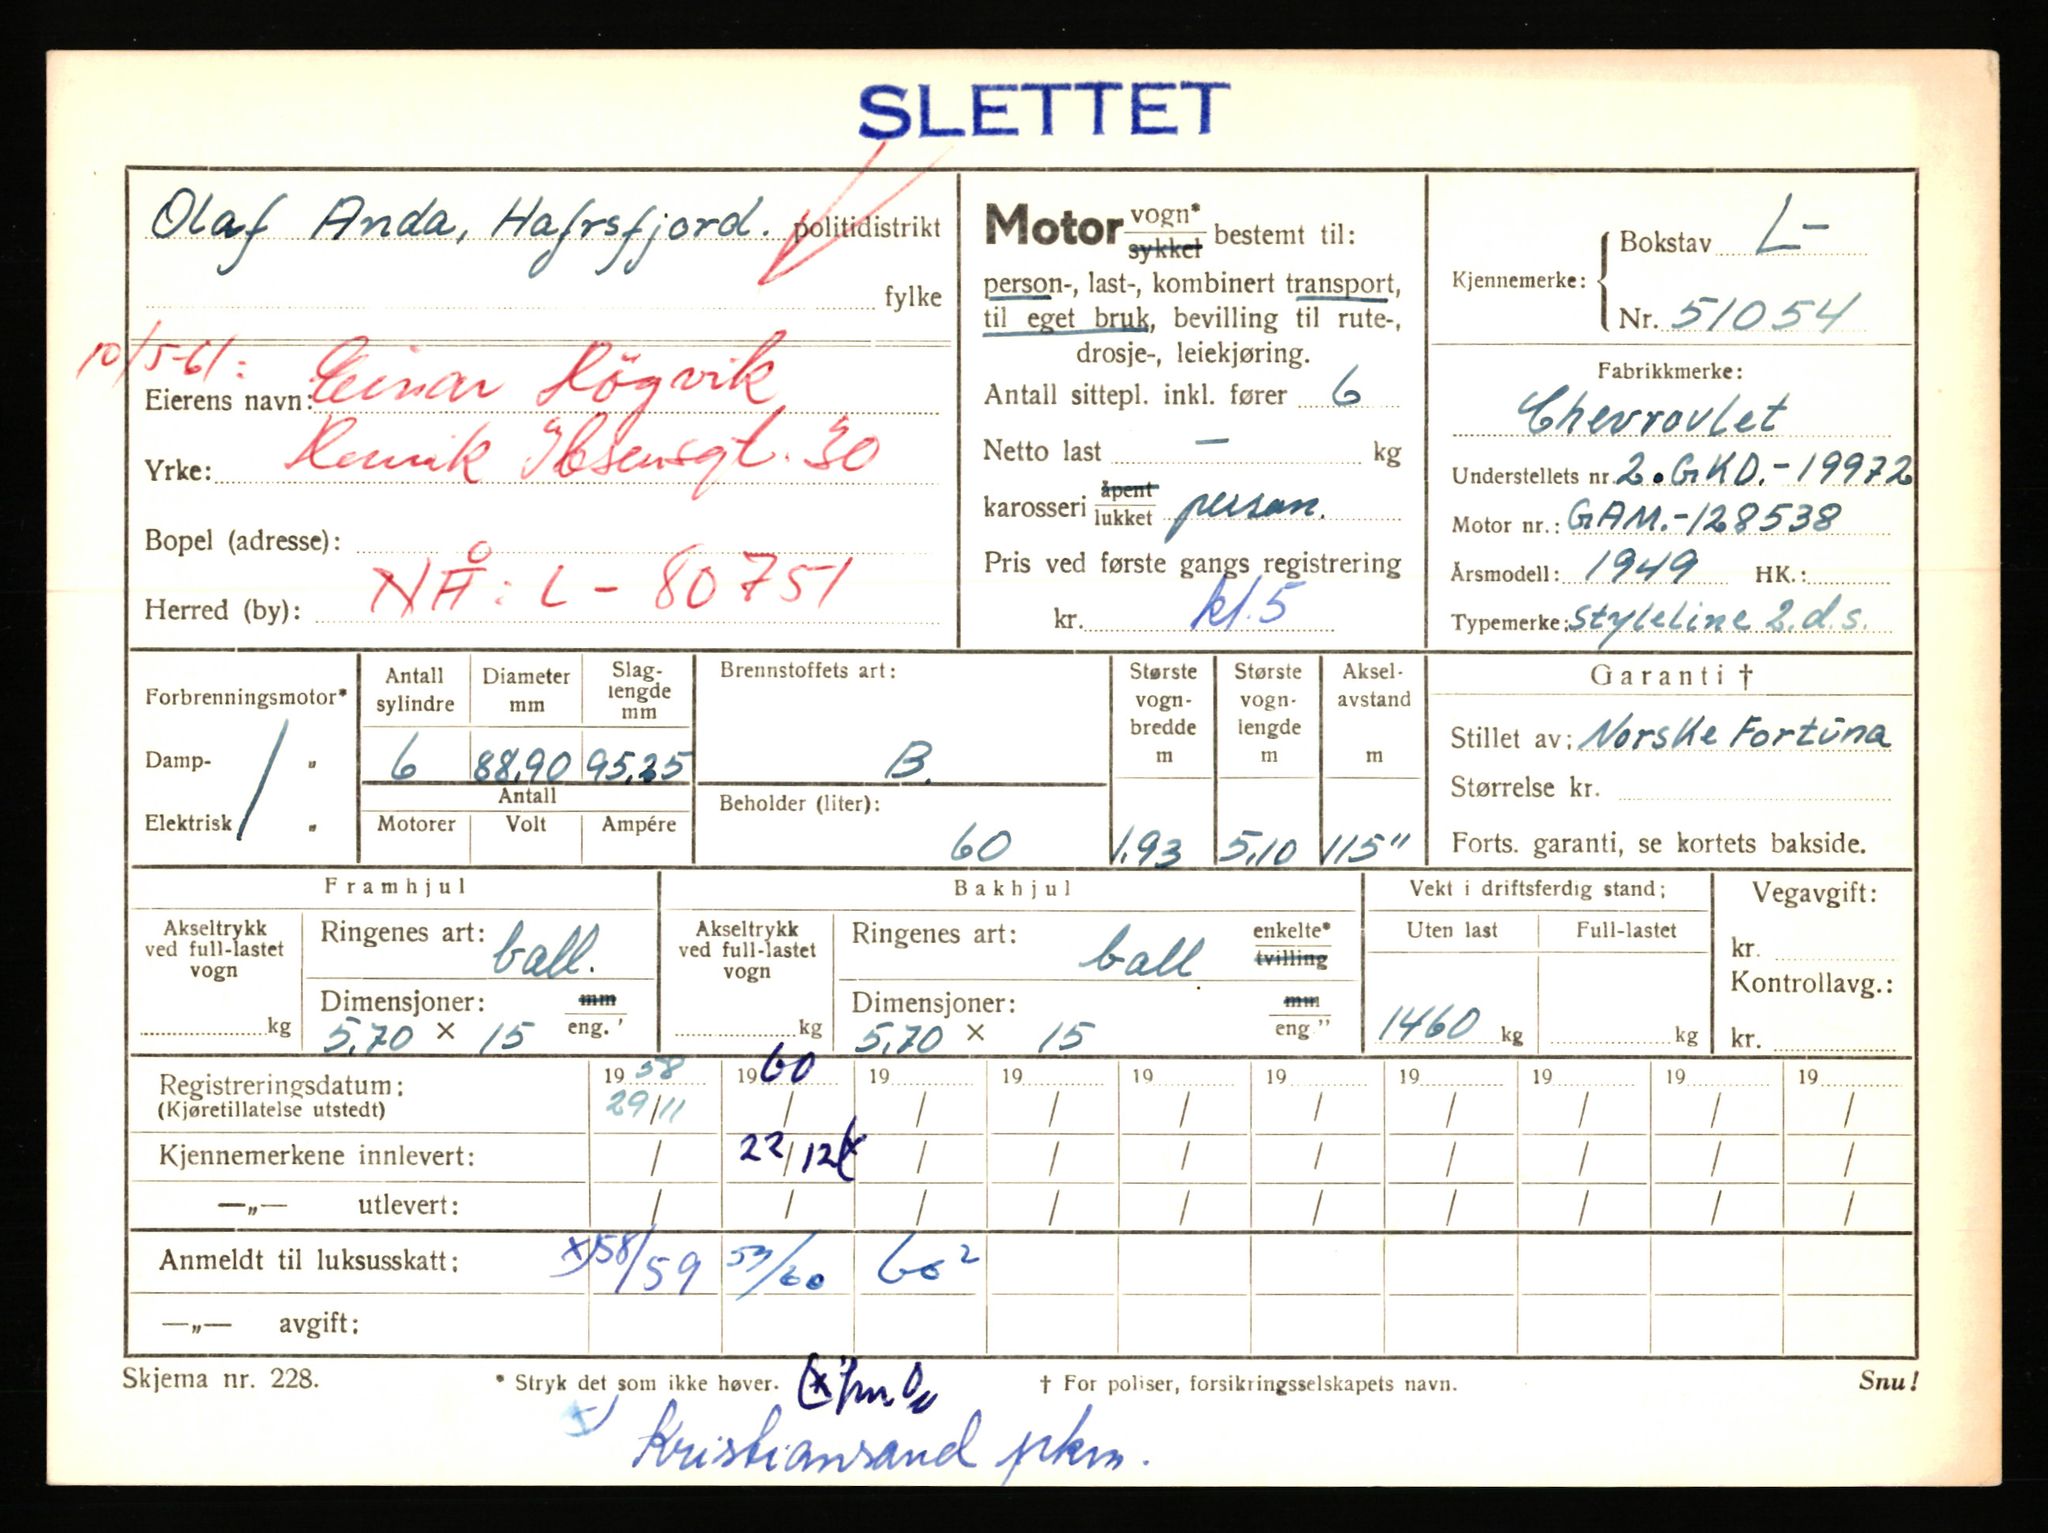 SLETTET
Olaf Anda, Hafrsfjord. politidistrikt
fylke
10/5-61: Einar Högvik
Eierens navn:
Henrik Ibsensgt. 30
Yrke:
Bopel (adresse):
NÅ: L - 80751
Herred (by):
Motor vogn* sykkel bestemt til:
person-, last-, kombinert transport,
til eget bruk, bevilling til rute-,
drosje-, leiekjøring.
Antall sittepl. inkl. fører 6
Netto last — kg
karosseri åpent lukket person.
Pris ved første gangs registrering
kr. kl. 5
Kjennemerke: Bokstav L-
Nr. 51054
Fabrikkmerke:
Chevrovlet
Understellets nr. 2.GKD.-19972
Motor nr.: GAM.-128538
Årsmodell: 1949 HK.:
Typemerke: Styleline 2.d.s.
Forbrenningsmotor*
Damp- „
Elektrisk „
Antall sylindre Diameter mm Slag-lengde mm
6 88,90 95,25
Antall
Motorer Volt Ampére
Brennstoffets art:
B.
Beholder (liter):
60
Største vogn-bredde m
1,93
Største vogn-lengde m
5,10
Aksel-avstand m
115"
Garanti †
Stillet av: Norske Fortuna
Størrelse kr.
Forts. garanti, se kortets bakside.
Framhjul
Akseltrykk ved full-lastet vogn
kg
Ringenes art: ball.
Dimensjoner: mm eng.'
5,70 × 15
Bakhjul
Akseltrykk ved full-lastet vogn
kg
Ringenes art: ball enkelte* tvilling
Dimensjoner: mm eng"
5,70 × 15
Vekt i driftsferdig stand;
Uten last Full-lastet
1460 kg kg
Vegavgift:
kr.
Kontrollavg.:
kr.
Registreringsdatum: 1958 1960 19 19 19 19 19 19 19 19
(Kjøretillatelse utstedt) 29/11 / / / / / / / / /
Kjennemerkene innlevert: / 22/12 / / / / / / / /
—„— utlevert: / / / / / / / / / /
Anmeldt til luksusskatt: x) 58/59 59/60 60²
—„— avgift:
Skjema nr. 228. * Stryk det som ikke høver. † For poliser, forsikringsselskapets navn. Snu!
x) Kristiansand pkm.